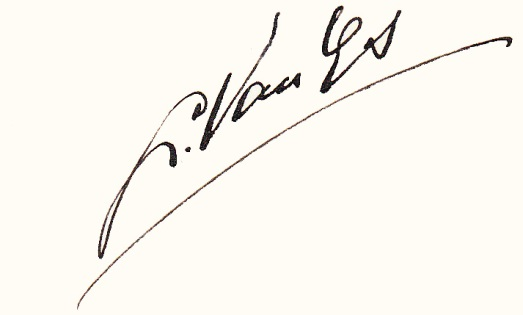 Van Es